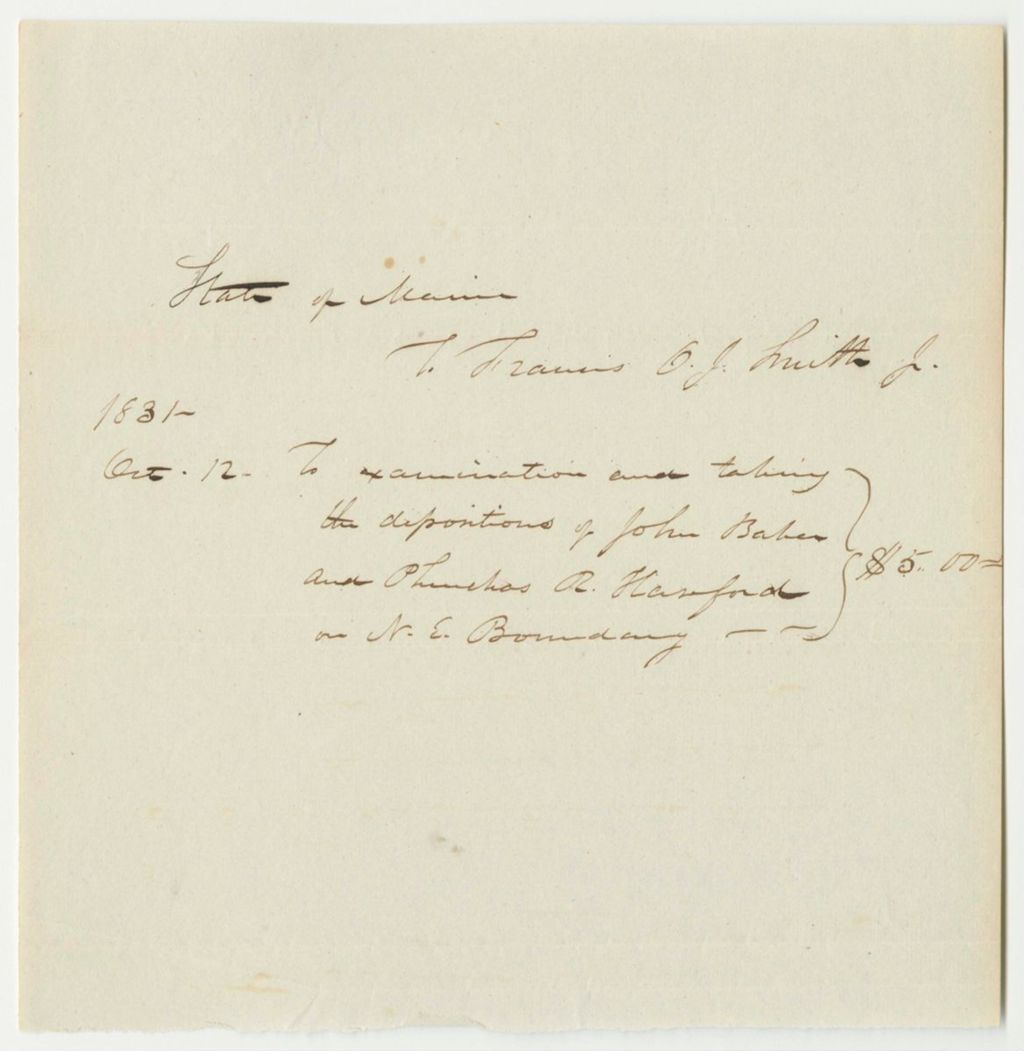 State of Maine
To Francis O. J. Smith Jr.
1831-
Oct. 12- To examination and taking
the depositions of John Baker
and Phinehas R. Harford
on N. E. Boundary — —
$5.00=